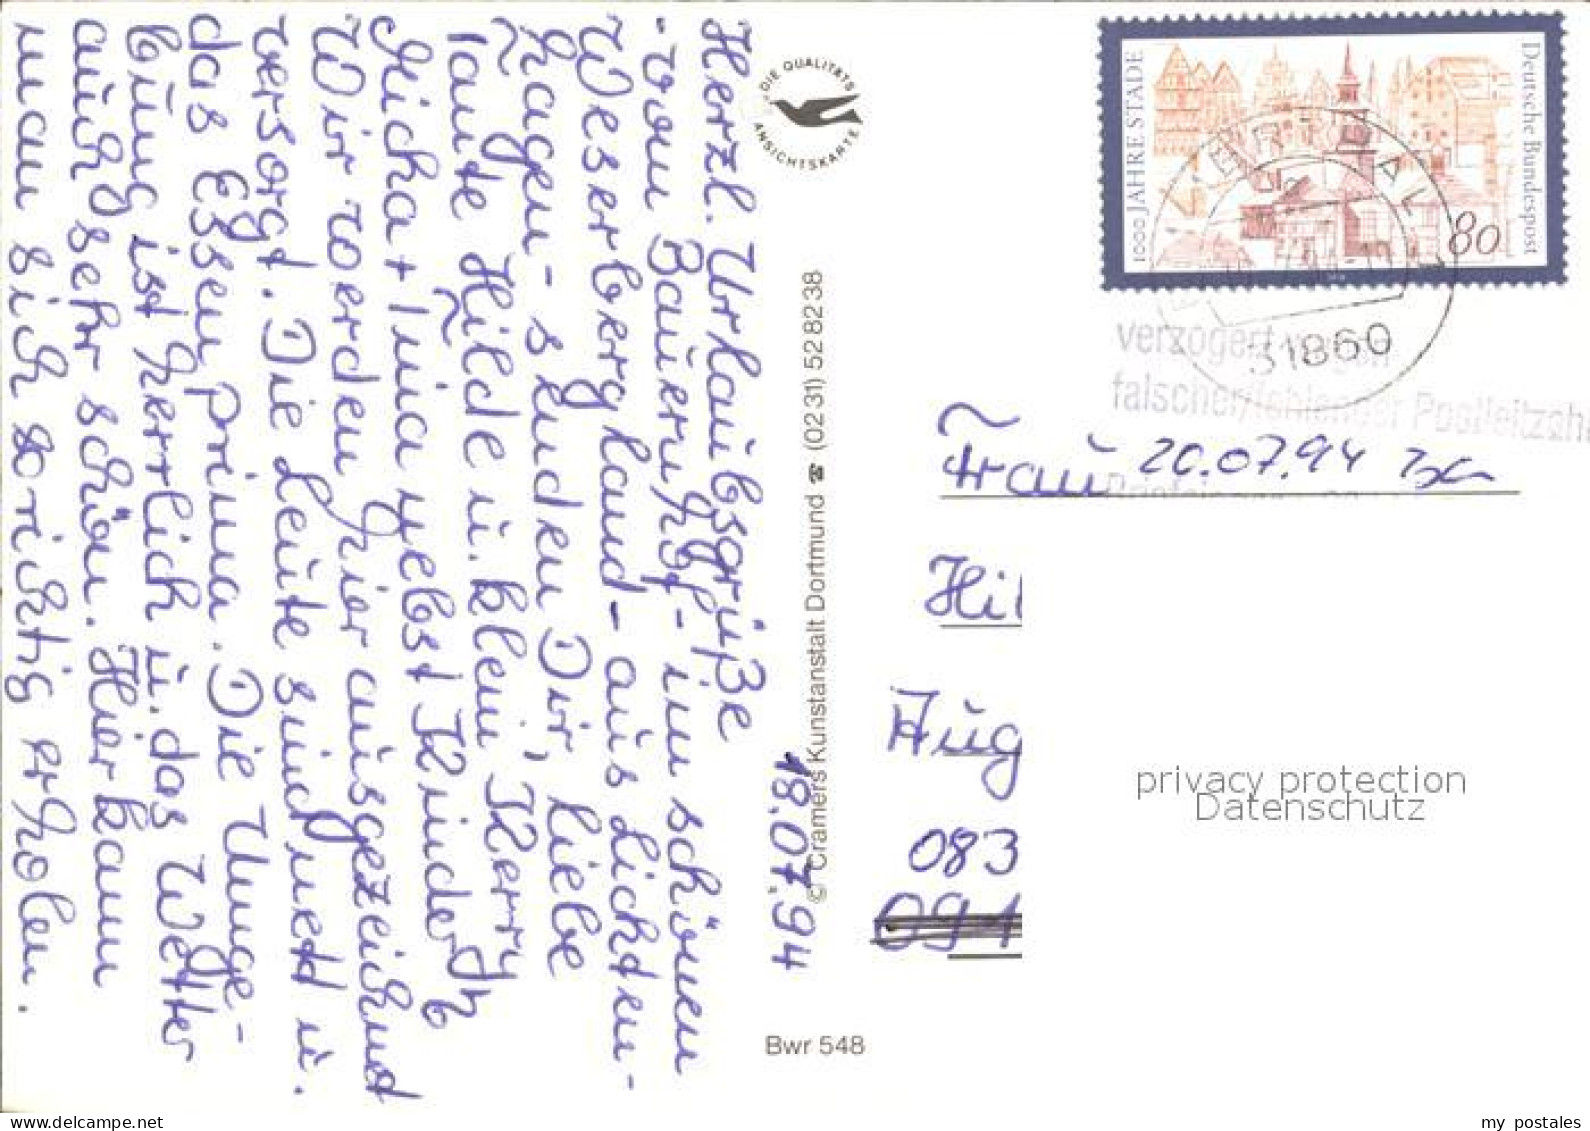 Herzl. Urlaubsgrüße
-vom Bauernhof- im schönen
Weserbergland- aus Lichten-
hagen- senden Dir, liebe
Tante Hilde u. klein Kerry
Micha + Ina nebst Kinder
Wir werden hier ausgezeichnet
versorgt. Die Leute sind nett u.
das Essen prima. Die Umge-
bung ist herrlich u. das Wetter
auch sehr schön. Hier kann
man sich so richtig erholen.
18.07.94
DIE QUALITÄTS
ANSICHTSKARTE
© Cramers Kunstanstalt Dortmund ☎ (0231) 528238
Bwr 548
1000 JAHRE STADE
Deutsche Bundespost
80
31860
verzögert wegen
falscher/fehlender Postleitzahl
20.07.94
Frau
Hil
Aug
083
091
privacy protection
Datenschutz
my postales
Delcampe.net